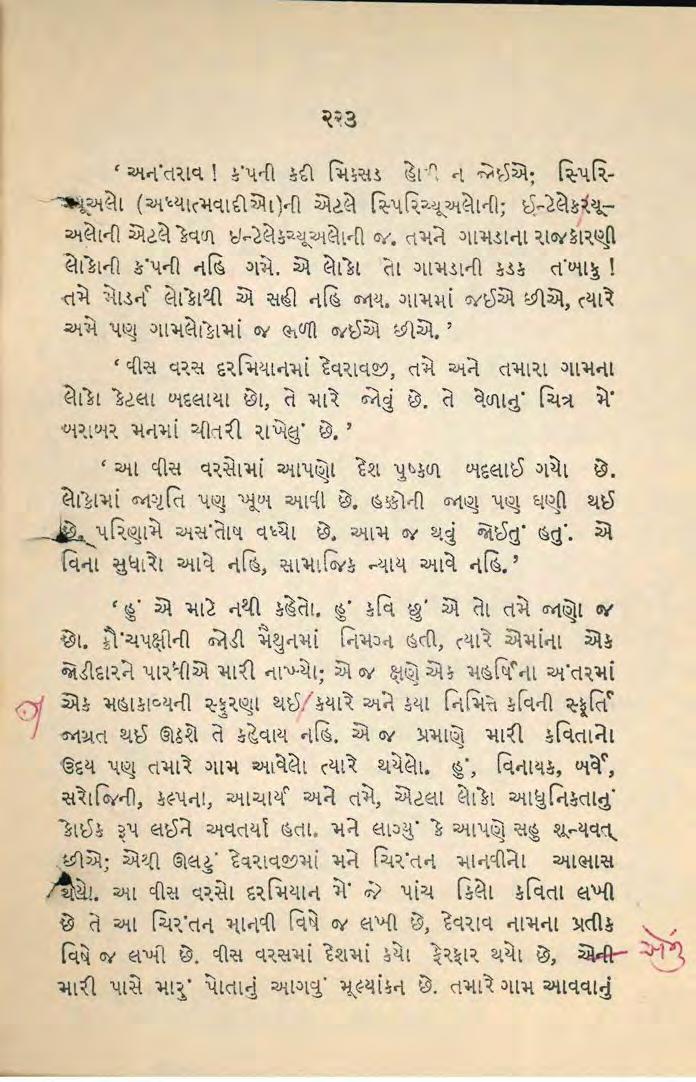 ૨૨૩
‘ અનંતરાવ ! કંપની કદી મિક્સડ હોવી ન જોઈએ; સ્પિરિ-
ચ્યૂઅલો (અધ્યાત્મવાદીઓ)ની એટલે સ્પિરિચ્યૂઅલોની; ઈન્ટેલેક્ચ્યૂ–
અલોની એટલે કેવળ ઇન્ટેલેક્ચ્યૂઅલોની જ. તમને ગામડાના રાજકારણી
લોકોની કંપની નહિ ગમે. એ લોકો તો ગામડાની કડક તંબાકુ !
તમે મોડર્ન લોકોથી એ સહી નહિ જાય. ગામમાં જઈએ છીએ, ત્યારે
અમે પણ ગામલોકોમાં જ ભળી જઈએ છીએ. ’
‘ વીસ વરસ દરમિયાનમાં દેવરાવજી, તમે અને તમારા ગામના
લોકો કેટલા બદલાયા છો, તે મારે જોવું છે. તે વેળાનું ચિત્ર મેં
બરાબર મનમાં ચીતરી રાખેલું છે. ’
‘ આ વીસ વરસોમાં આપણો દેશ પુષ્કળ બદલાઈ ગયો છે.
લોકોમાં જાગૃતિ પણ ખૂબ આવી છે. હક્કોની જાણ પણ ઘણી થઈ
છે. પરિણામે અસંતોષ વધ્યો છે. આમ જ થવું જોઈતું હતું. એ
વિના સુધારો આવે નહિ, સામાજિક ન્યાય આવે નહિ. ’
‘ હું એ માટે નથી કહેતો. હું કવિ છું એ તો તમે જાણો જ
છો. ક્રૌંચપક્ષીની જોડી મૈથુનમાં નિમગ્ન હતી, ત્યારે એમાંના એક
જોડીદારને પારધીએ મારી નાખ્યો; એ જ ક્ષણે એક મહર્ષિના અંતરમાં
એક મહાકાવ્યની સ્ફુરણા થઈ/ કયારે અને કયા નિમિત્તે કવિની સ્ફૂર્તિ
જાગ્રત થઈ ઊઠશે તે કહેવાય નહિ. એ જ પ્રમાણે મારી કવિતાનો
ઉદય પણ તમારે ગામ આવેલો ત્યારે થયેલો. હું, વિનાયક, બર્વે,
સરોજિની, કલ્પના, આચાર્ય અને તમે, એટલા લોકો આધુનિકતાનું
કોઈક રૂપ લઈને અવતર્યા હતા. મને લાગ્યું કે આપણે સહુ શૂન્યવત્
છીએ; એથી ઊલટું દેવરાવજીમાં મને ચિરંતન માનવીનો આભાસ
થયો. આ વીસ વરસો દરમિયાન મેં જે પાંચ કિલો કવિતા લખી
છે તે આ ચિરંતન માનવી વિષે જ લખી છે, દેવરાવ નામના પ્રતીક
વિષે જ લખી છે. વીસ વરસમાં દેશમાં કયો ફેરફાર થયો છે, એની એનું
મારી પાસે મારું પોતાનું આગવું મૂલ્યાંકન છે. તમારે ગામ આવવાનું